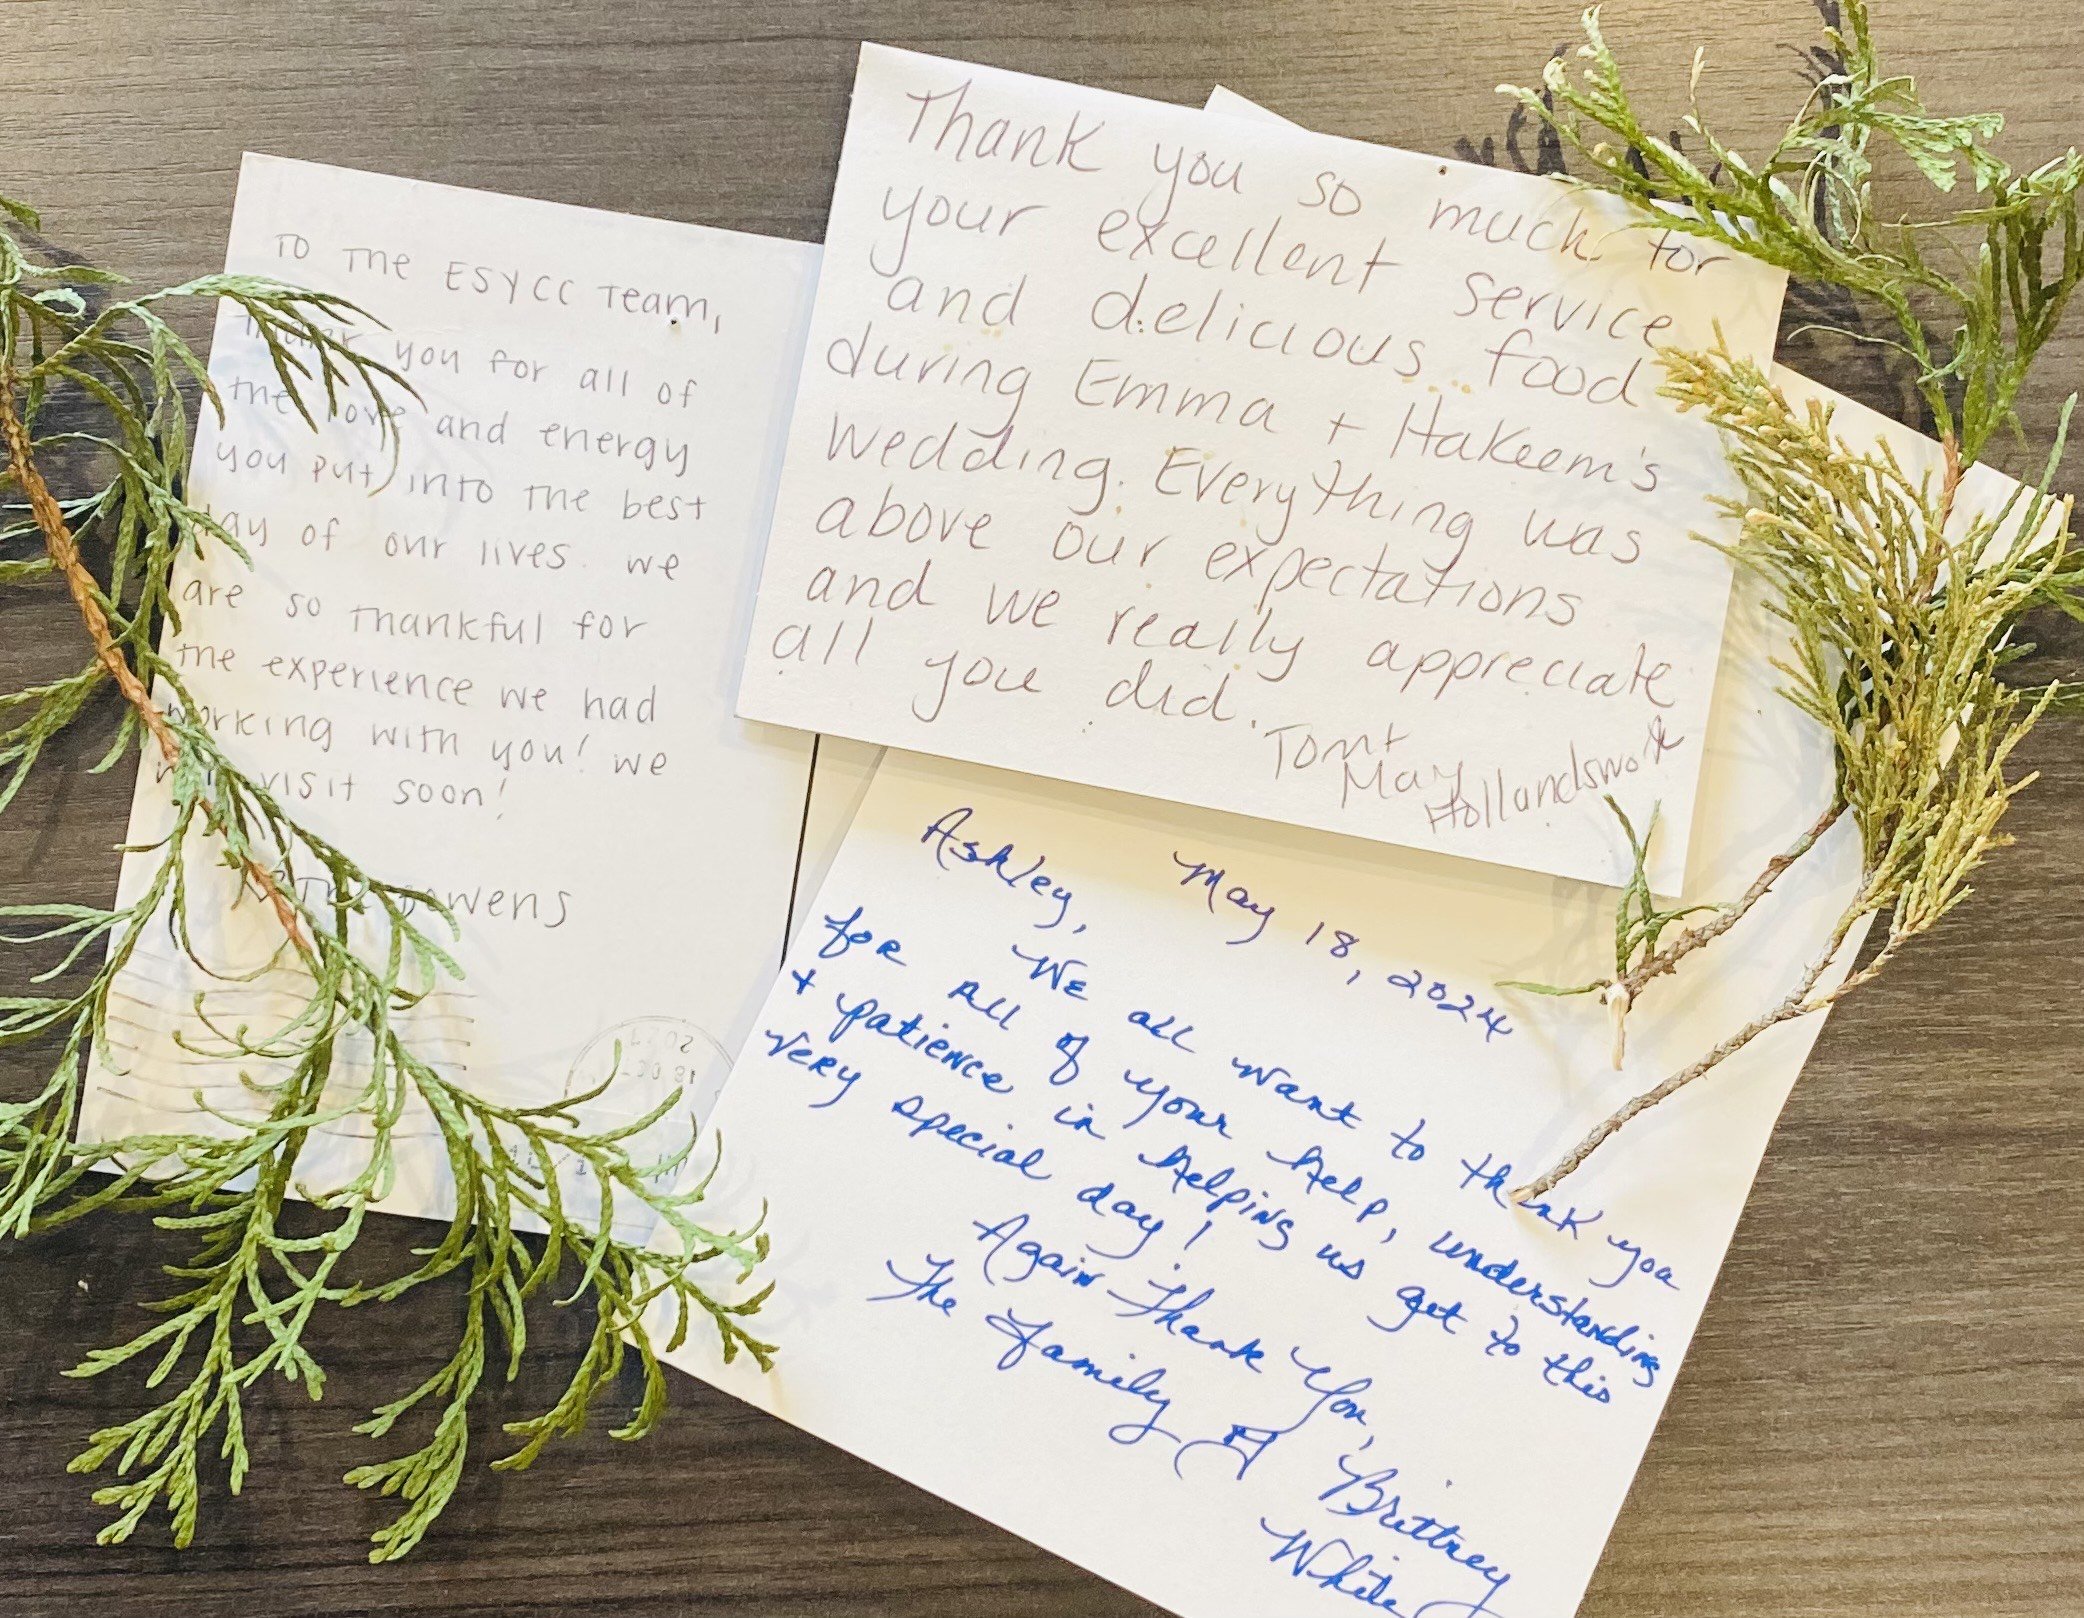 TO THE ESYCC TEAM,
THANK you for all of
the love and energy
you put into the best
day of our lives. we
are so thankful for
the experience we had
working with you! we
will visit soon!
THE BOWENS
Thank you so much for
your excellent service
and delicious food
during Emma + Hakeem's
wedding. Everything was
above our expectations
and we really appreciate
all you did.
Tom +
May
Hollandsworth
May 18, 2024
Ashley,
We all want to thank you
for all of your help, understanding
+ patience in helping us get to this
very special day!
Again Thank You,
The Family of Brittney
White